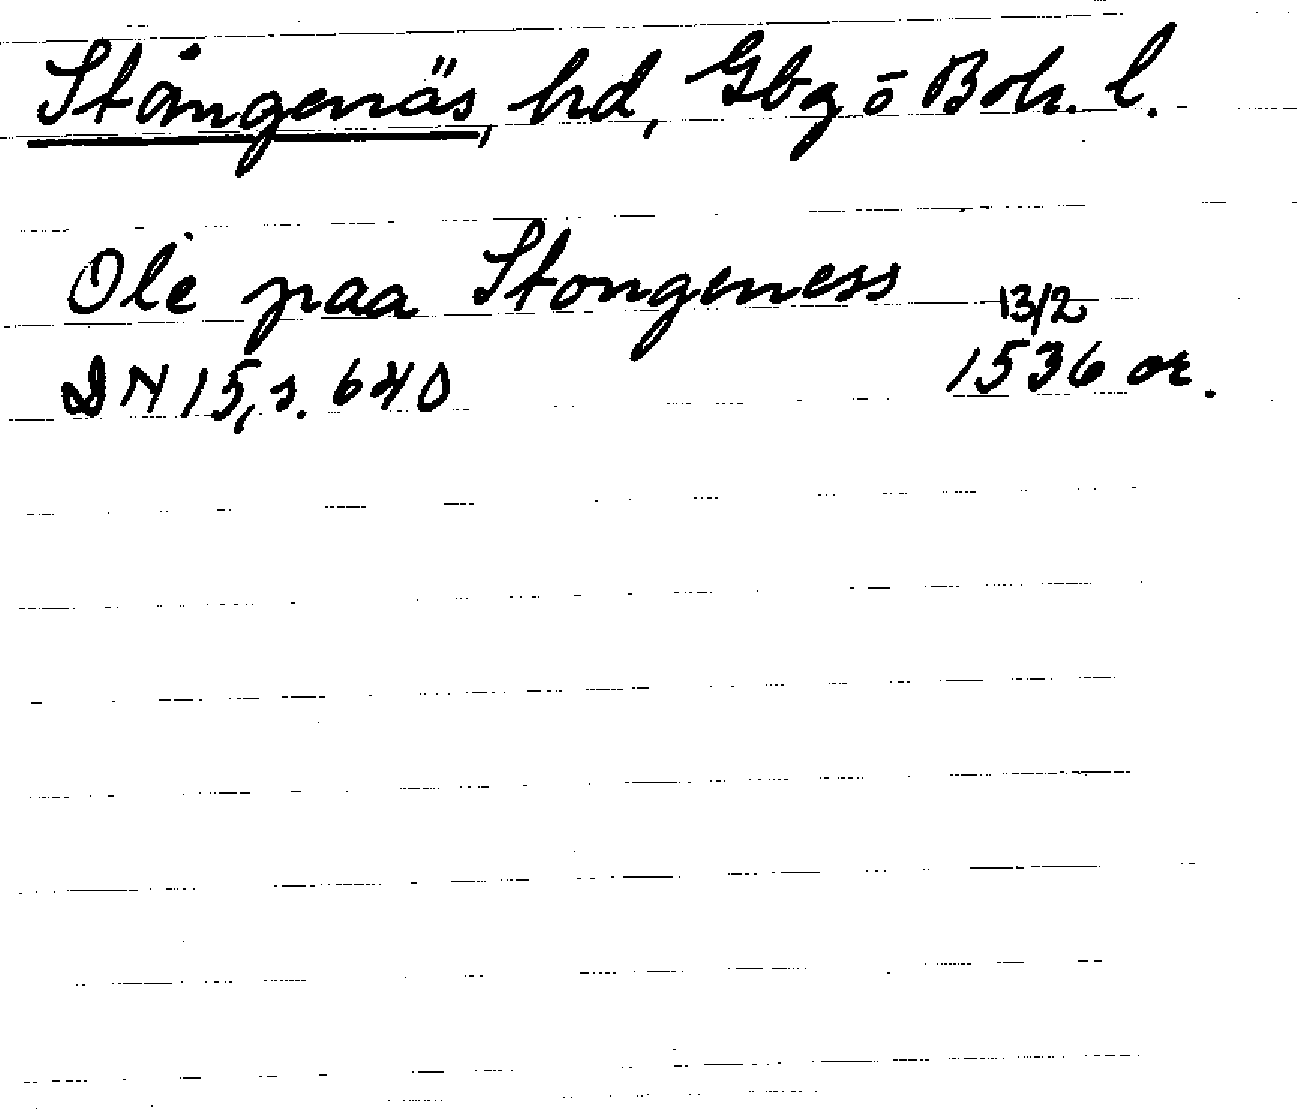 Stångenäs, hd, Gbg ō Boh. l.
Ole paa Stongeness 13/2
DN 15, s. 640 1536 or.